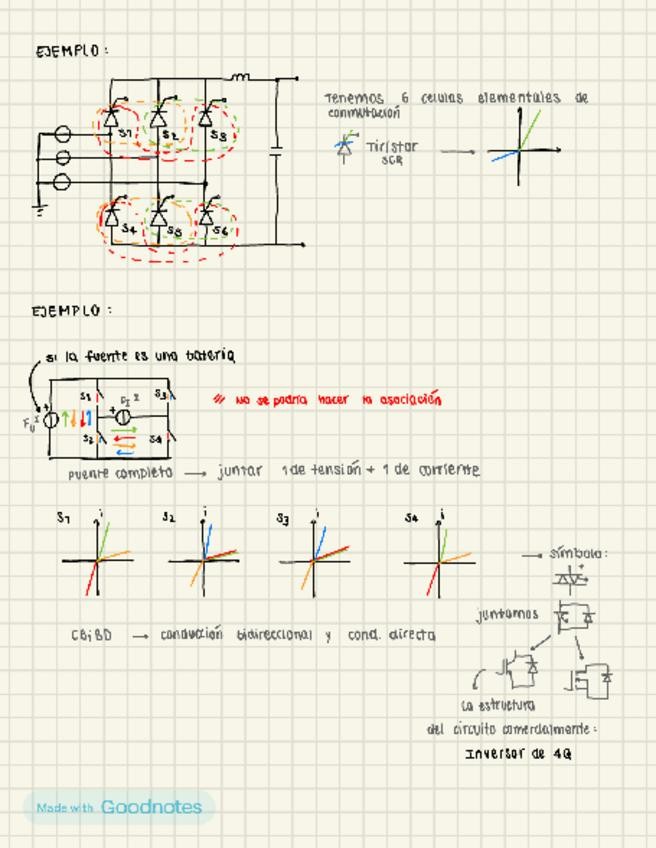 EJEMPLO:
Tenemos 6 celulas elementales de
conmutación
S1 S2 S3
Tiristor
SCR
S4 S5 S6
EJEMPLO:
si la fuente es una batería
S1 S3
S2 S4
// No se podría hacer la asociación
puente completo → juntar 1 de tensión + 1 de corriente
S1 i S2 i S3 i S4 i
→ símbolo:
juntamos
CBiBD → conducción bidireccional y cond. directa
La estructura
del circuito comercialmente:
Inversor de 4Q
Made with Goodnotes